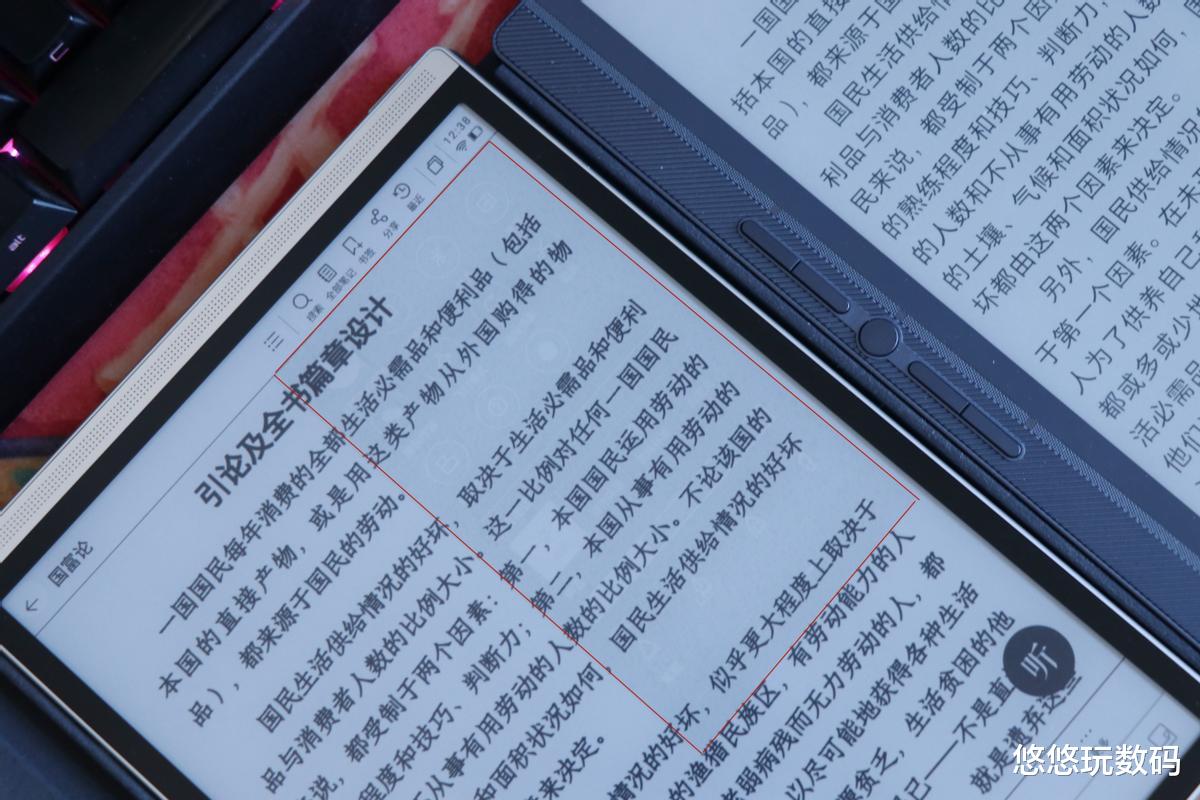 alt
12:38
搜索 全部笔记 书签 分享 最近
国富论
引论及全书篇章设计
一国国民每年消费的全部生活必需品和便利品（包括
本国的直接产物，或是用这类产物从外国购得的物
品），都来源于国民的劳动。
国民生活供给情况的好坏，取决于生活必需品和便利
品与消费者人数的比例大小。这一比例对任何一国国民
说，都受制于两个因素：第一，本国国民运用劳动的
程度和技巧、判断力；第二，本国从事有用劳动的
不从事有用劳动的人数的比例大小。不论该国的
和面积状况如何，国民生活供给情况的好坏
来决定。
情况的好坏，似乎更大程度上取决于
的渔猎民族区，有劳动能力的人
老弱病残而无力劳动的人，都
以尽可能地获得各种生活
源贫乏，生活贫困的他
己——不是直
就是遗弃这些
听
一国国
括本国的直接
品），都来源于国
国民生活供给情
利品与消费者人数的比
民来说，都受制于两个因
的熟练程度和技巧、判断力，
的人数和不从事有用劳动的人数
的土壤、气候和面积状况如何，
坏都由这两个因素来决定。
另外，国民供给情况
于第一个因素。在未
人为了供养自己
都或多或少
活必需品
他们
悠悠玩数码